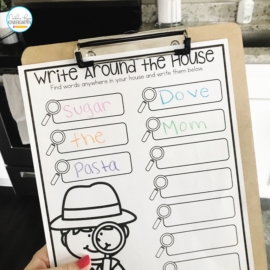 Write Around the House
Find words anywhere in your house and write them below.
Sugar
Dove
the
Mom
Pasta